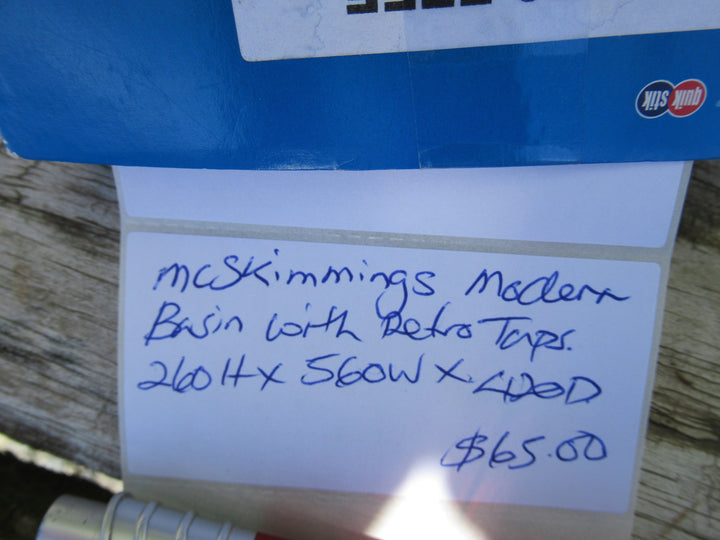 quik
stik
McSkimmings Modern
Basin with Retro Taps.
260H x 560W x 420D
$65.00